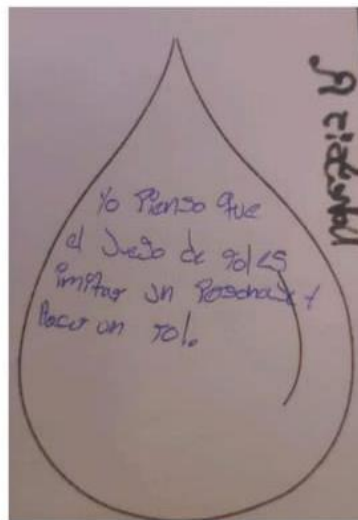 Yo Pienso que
el Juego de roles
imitar un Personaje y
hacer un rol.